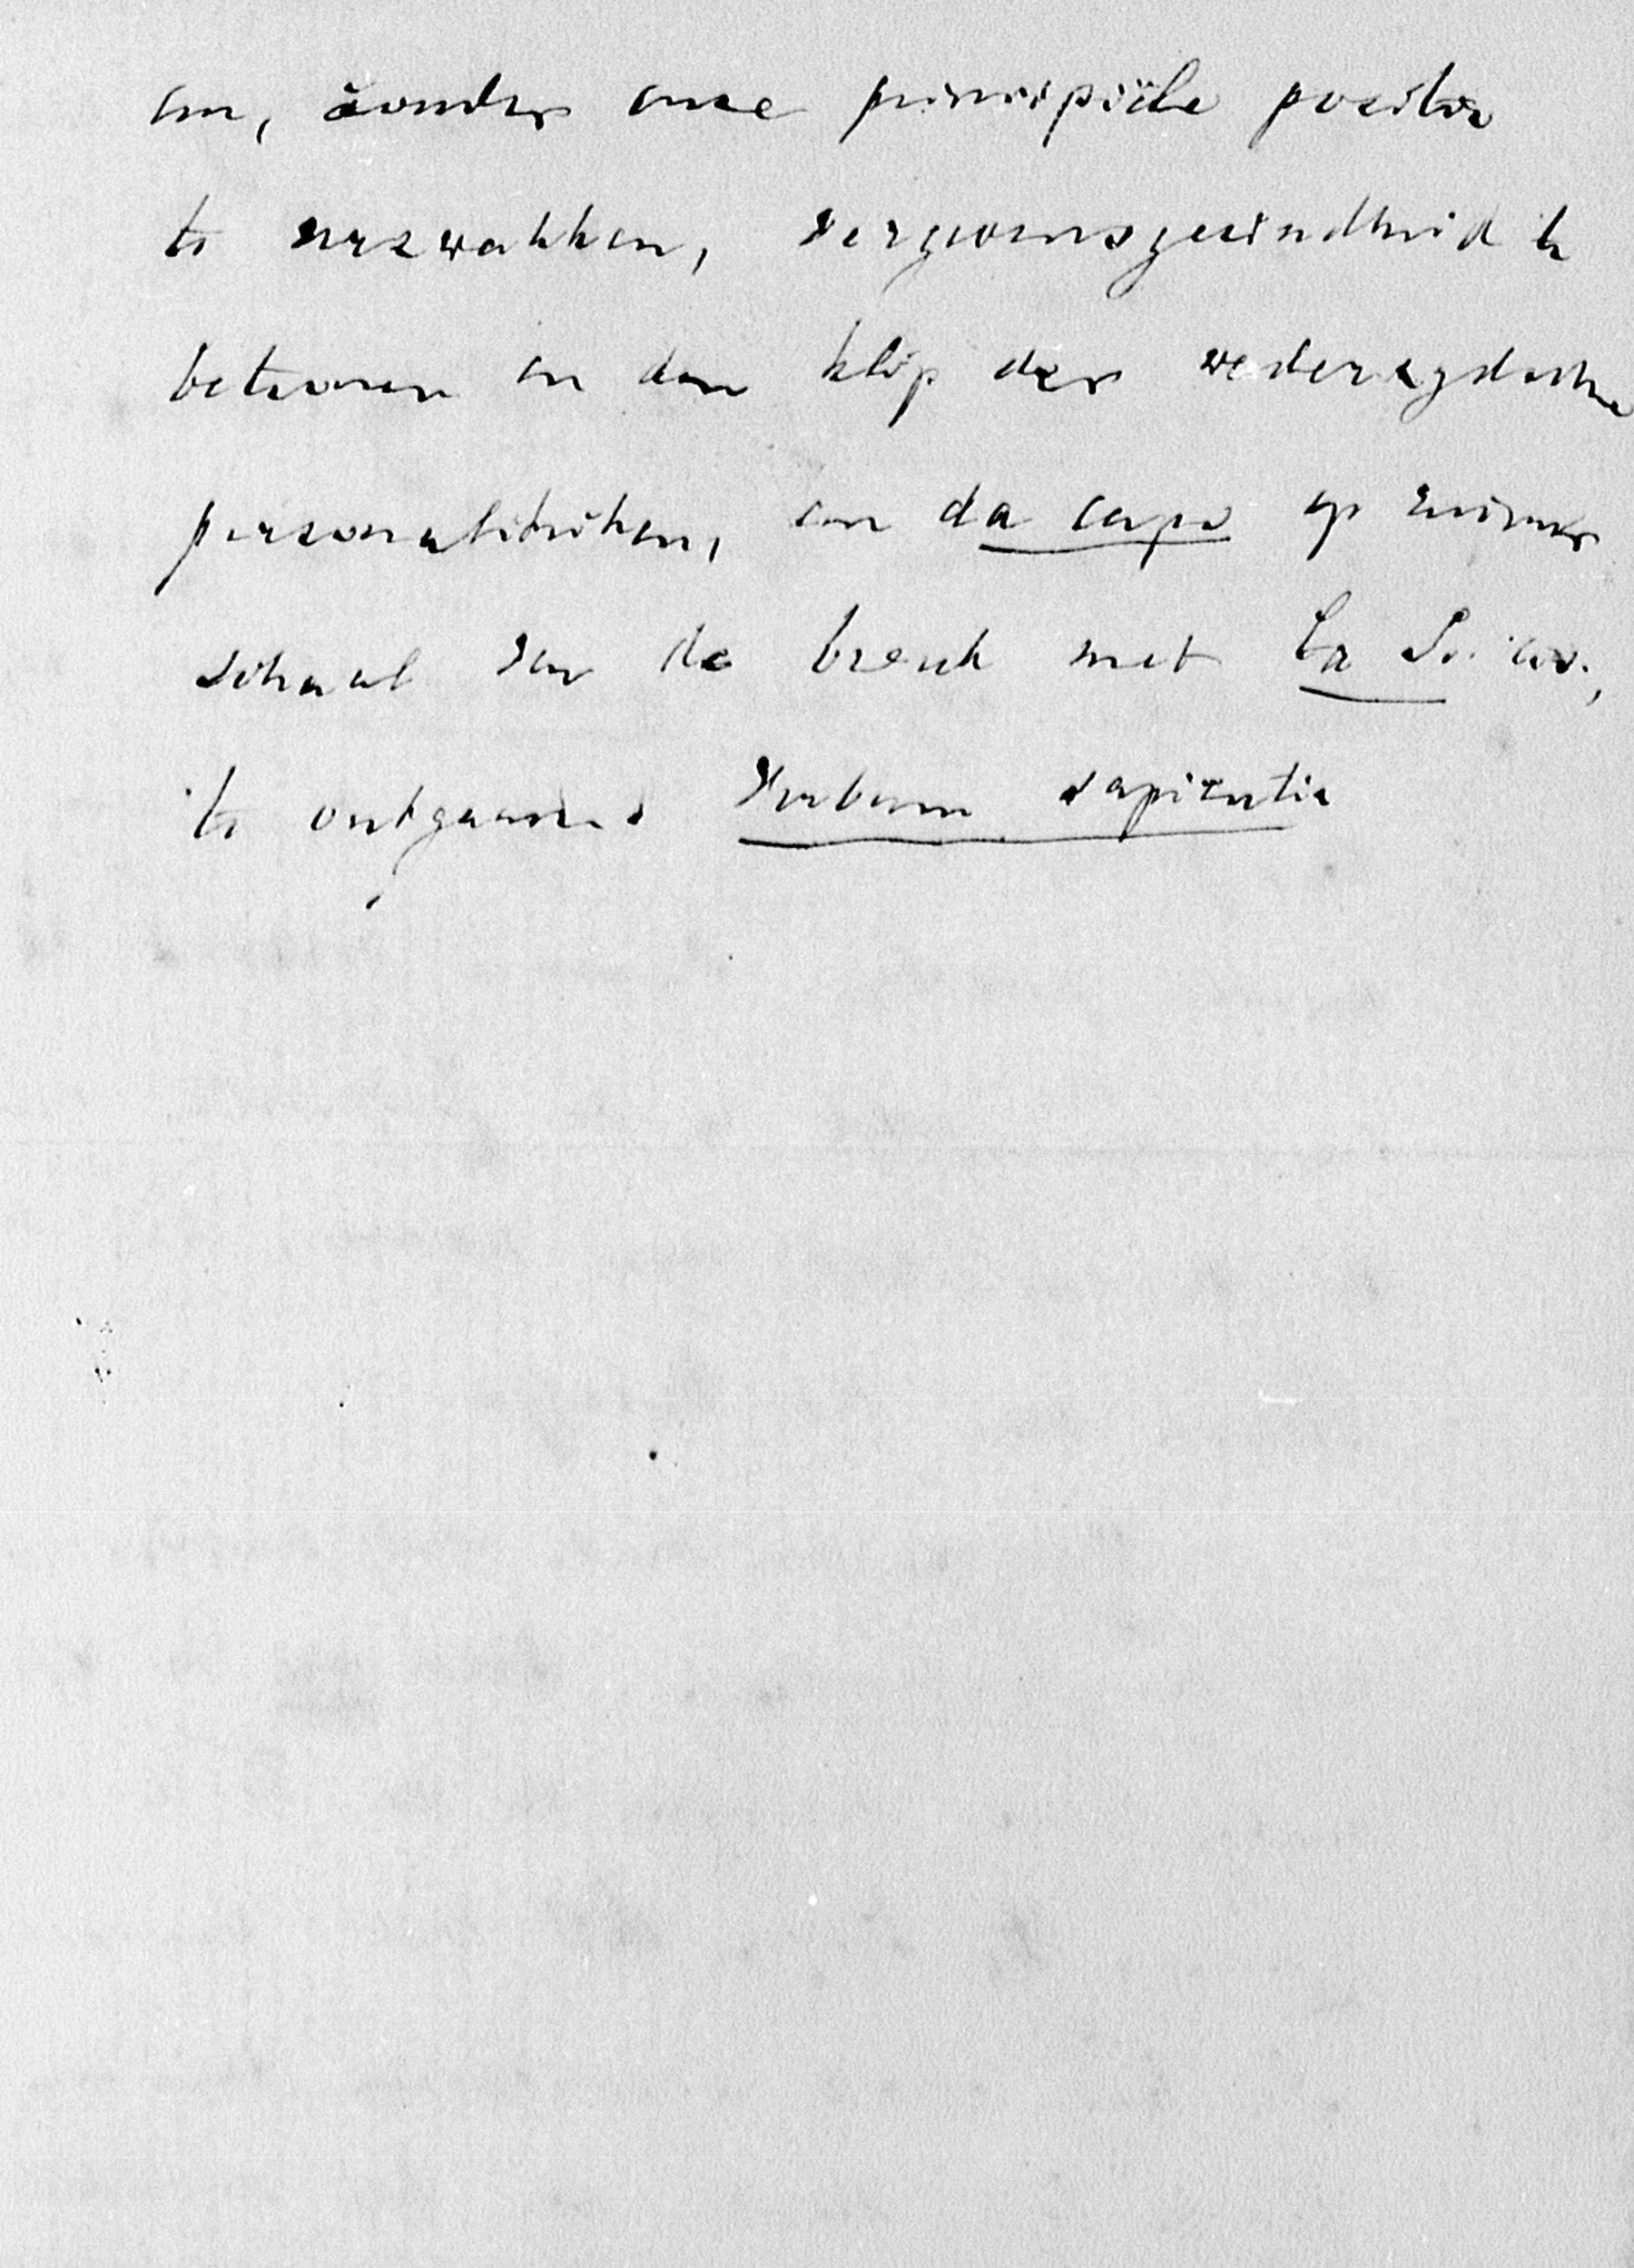 om, zonder onze principiële positie
te verzwakken, vergevensgezindheid te
betonen en den klip der wederzydsche
personaliteiten, een da capo op
schaal van de breuk met La
te ontgaan. Verbum sapienti